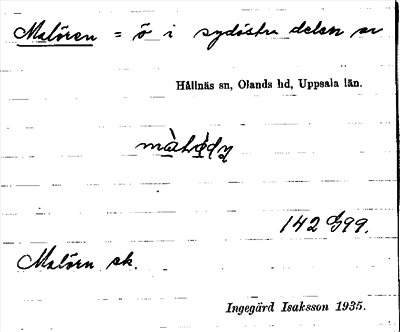 Malören = ö i sydöstra delen av
Hållnäs sn, Olands hd, Uppsala län.
142 G99.
Malörn sk.
Ingegärd Isaksson 1935.